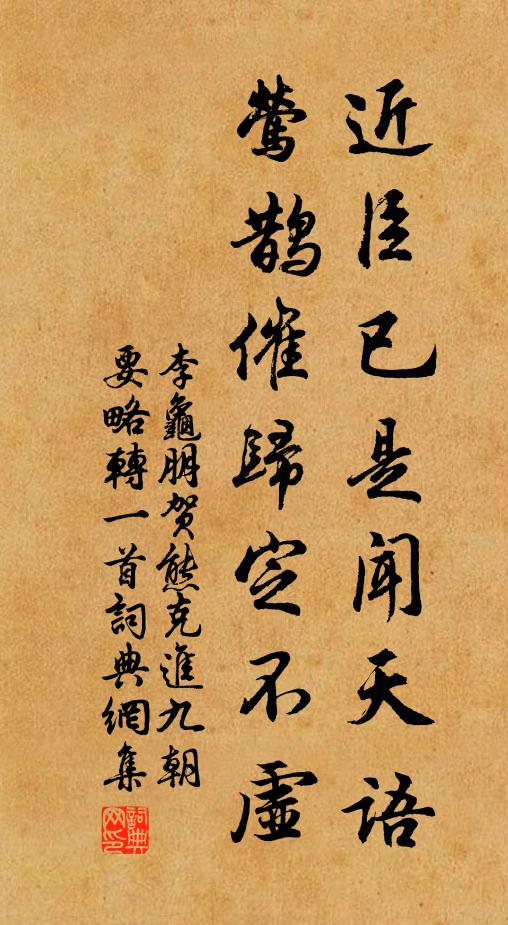 近臣已是闻天语
莺鹊催归定不虚
李龜朋贺熊克進九朝
要略轉一首詞典網集
詞典网印